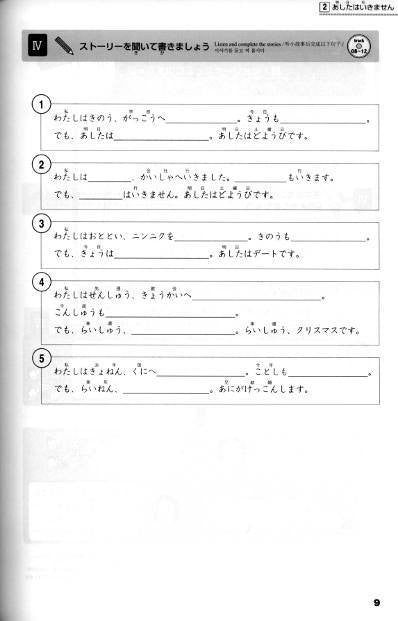 2 あしたはいきません
IV ストーリーを聞いて書きましょう Listen and complete the stories
track 08-12
1
わたしはきのう、がっこうへ＿＿＿＿＿＿。きょうも＿＿＿＿＿＿。
でも、あしたは＿＿＿＿＿＿。あしたはどようびです。
2
わたしは＿＿＿＿＿＿、かいしゃへいきました。＿＿＿＿＿＿もいきます。
でも、＿＿＿＿＿＿はいきません。あしたはどようびです。
3
わたしはおととい、ニンニクを＿＿＿＿＿＿。きのうも＿＿＿＿＿＿。
でも、きょうは＿＿＿＿＿＿。あしたはデートです。
4
わたしはせんしゅう、きょうかいへ＿＿＿＿＿＿。
こんしゅうも＿＿＿＿＿＿。
でも、らいしゅう、＿＿＿＿＿＿。らいしゅう、クリスマスです。
5
わたしはきょねん、くにへ＿＿＿＿＿＿。ことしも＿＿＿＿＿＿。
でも、らいねん、＿＿＿＿＿＿。あにがけっこんします。
9